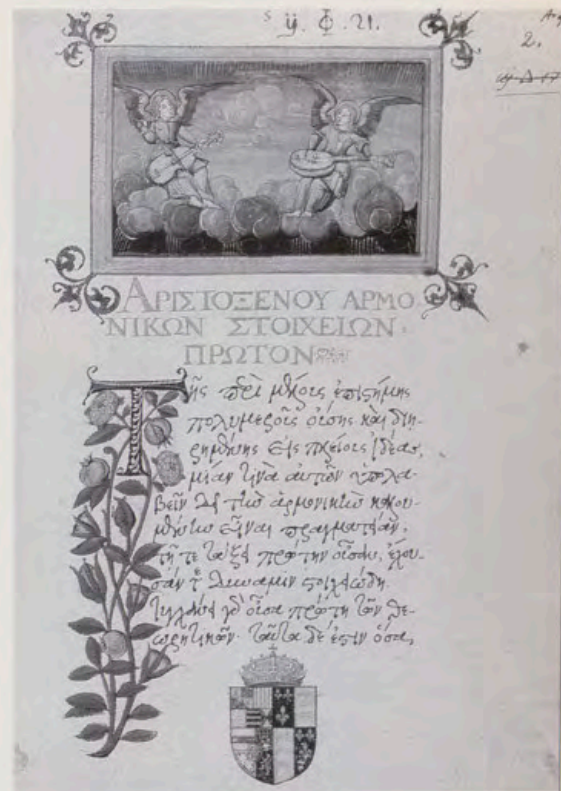 ÿ. Φ. 21.
2.
ΑΡΙΣΤΟΞΕΝΟΥ ΑΡΜΟ
ΝΙΚΩΝ ΣΤΟΙΧΕΙΩΝ·
ΠΡΩΤΟΝ
Τῆς περὶ μέλους ἐπιστήμης
πολυμεροῦς οὔσης καὶ διῃ-
ρημένης εἰς πλείους ἰδέας,
μίαν τινὰ αὐτῶν ὑπολα-
βεῖν δεῖ τὴν ἁρμονικὴν καλου-
μένην εἶναι πραγματείαν,
τῇ τε τάξει πρώτην οὖσαν, ἔχου-
σάν τε δύναμιν στοιχειώδη.
τυγχάνει γὰρ οὖσα πρώτη τῶν θε-
ωρητικῶν· ταῦτα δέ ἐστιν ὅσα,